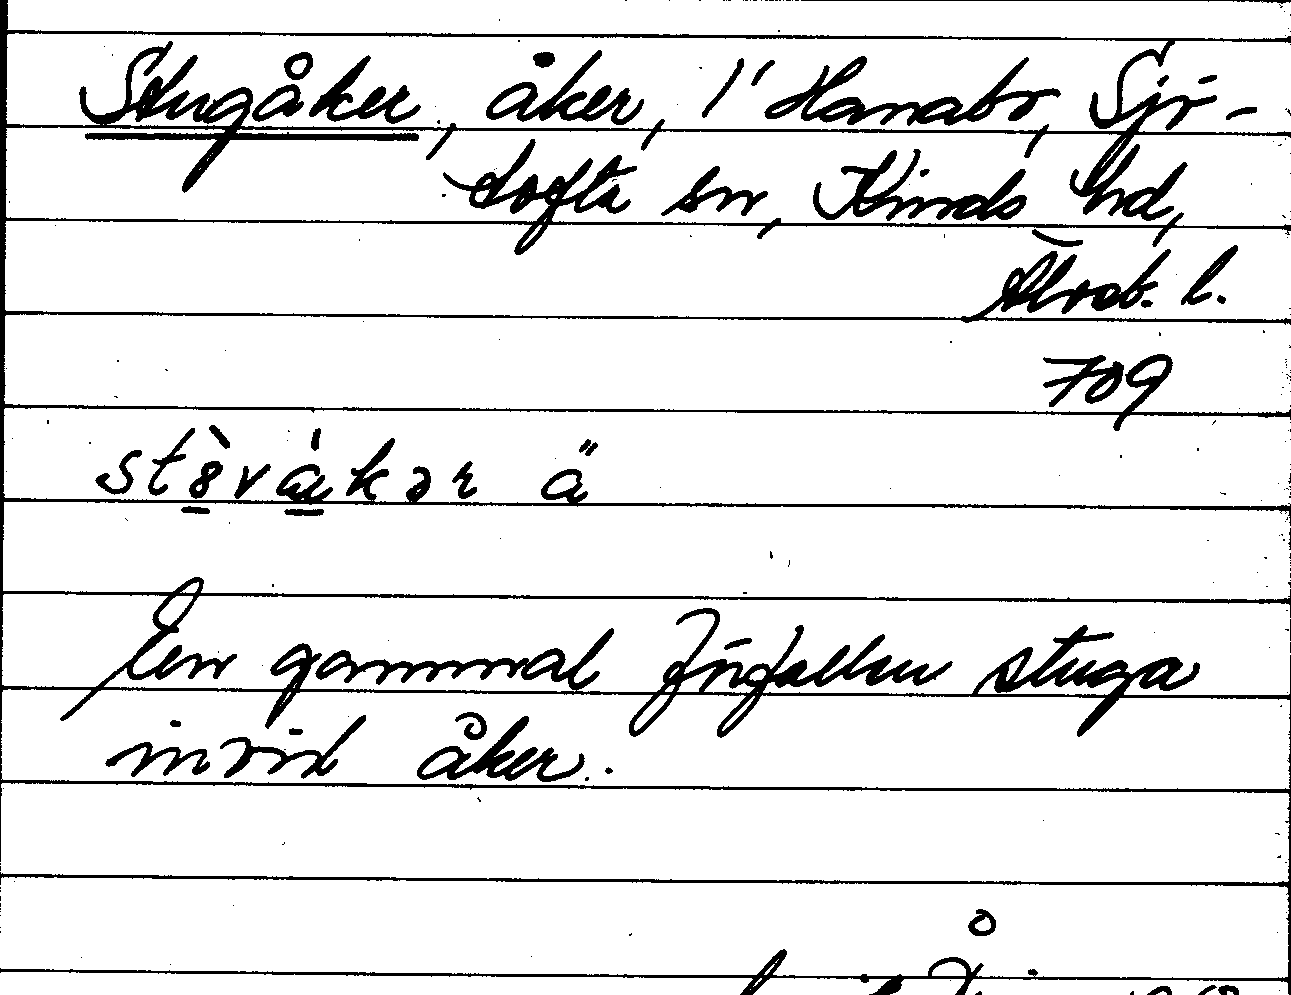 Stugåker, åker, 1/1 Hanabo, Sjö-
tofta sn, Kinds hd,
Älvsb. l.
709
st8̀vákər ä
En gammal förfallen stuga
invid åker.